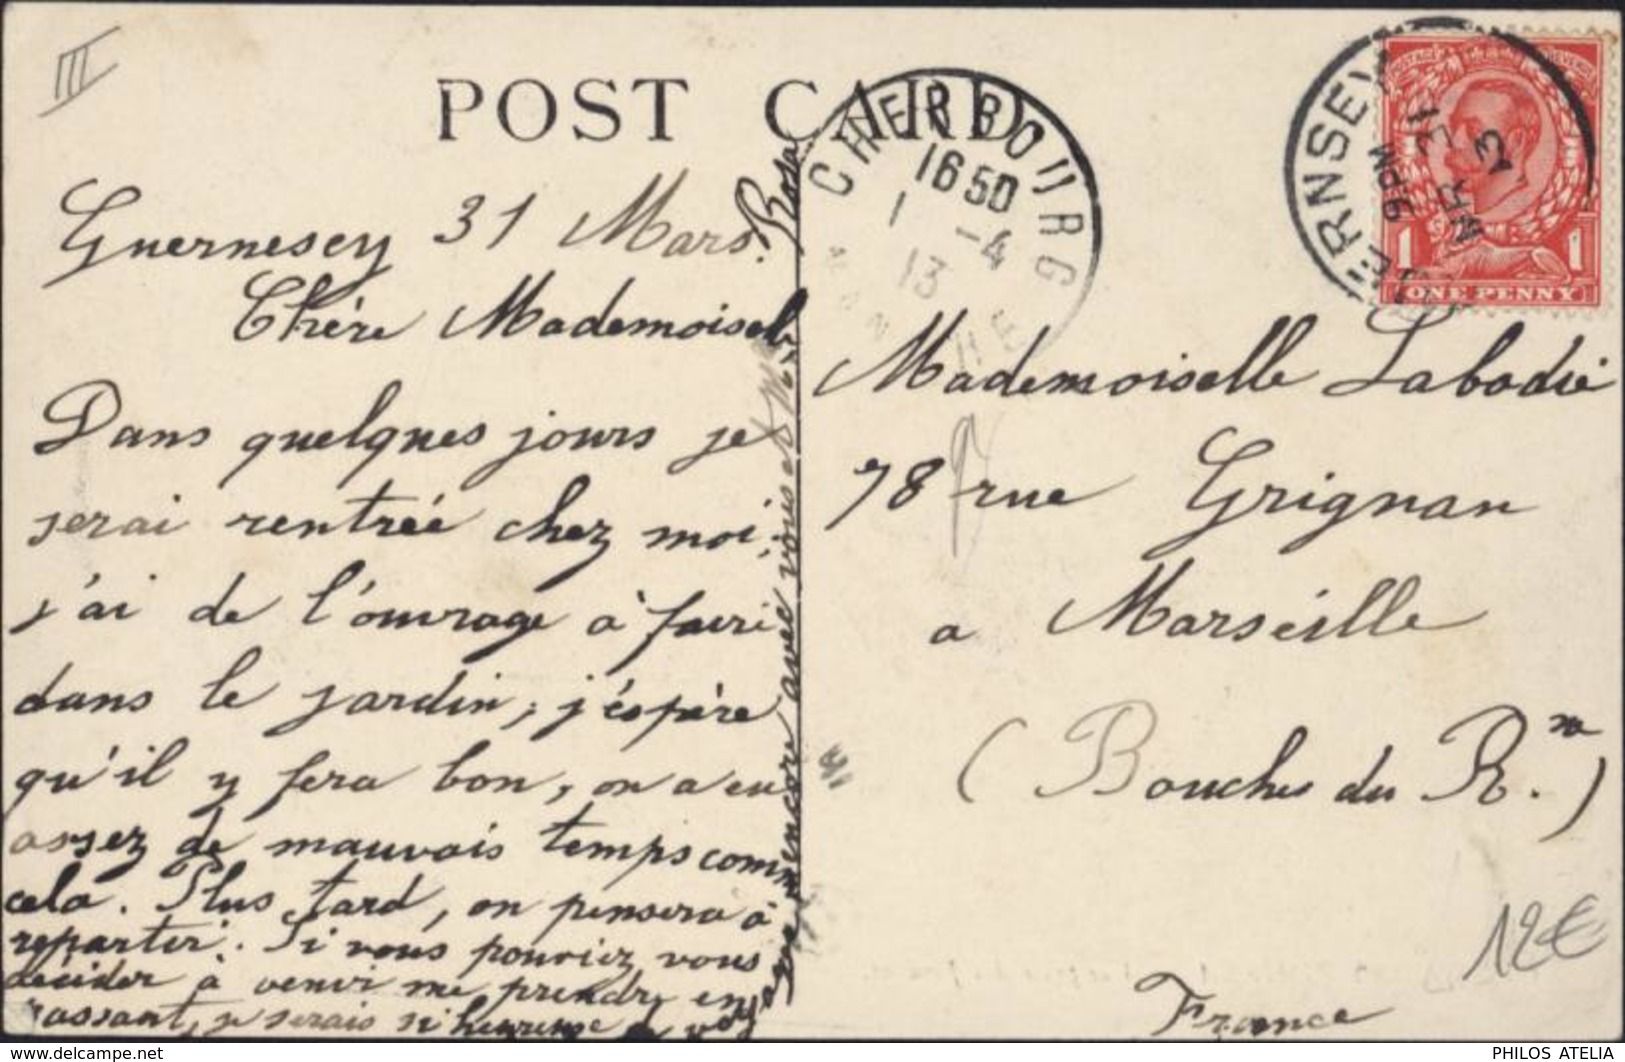 III
POST CARD
CHERBOURG
16 50
1 -4
13
MANCHE
GUERNSEY
9 PM
MR 31
13
ONE PENNY
1 1
Guernesey 31 Mars.
Chère Mademoisel
Dans quelques jours je
serai rentrée chez moi;
j'ai de l'ouvrage à faire
dans le jardin; j'éspère
qu'il y fera bon, on a eu
assez de mauvais temps comm
cela. Plus tard, on pensera à
repartir. Si vous pouviez vous
décider à venir me prendre en
passant, je serais si heureuse de
voyager encore avec vous et
Rosa
Mademoiselle Labodie
78 rue Grignan
a Marséille
(Bouches du R.ne)
France
12€
PHILOS ATELIA